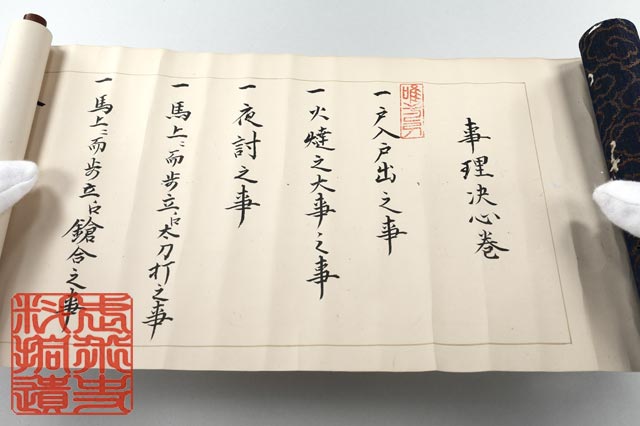 事理决心巻
一戸入戸出之事
一火燵之大事之事
一夜討之事
一馬上ニ而歩立太刀打之事
一馬上ニ而歩立鎗合之事
武術史
料拾遺